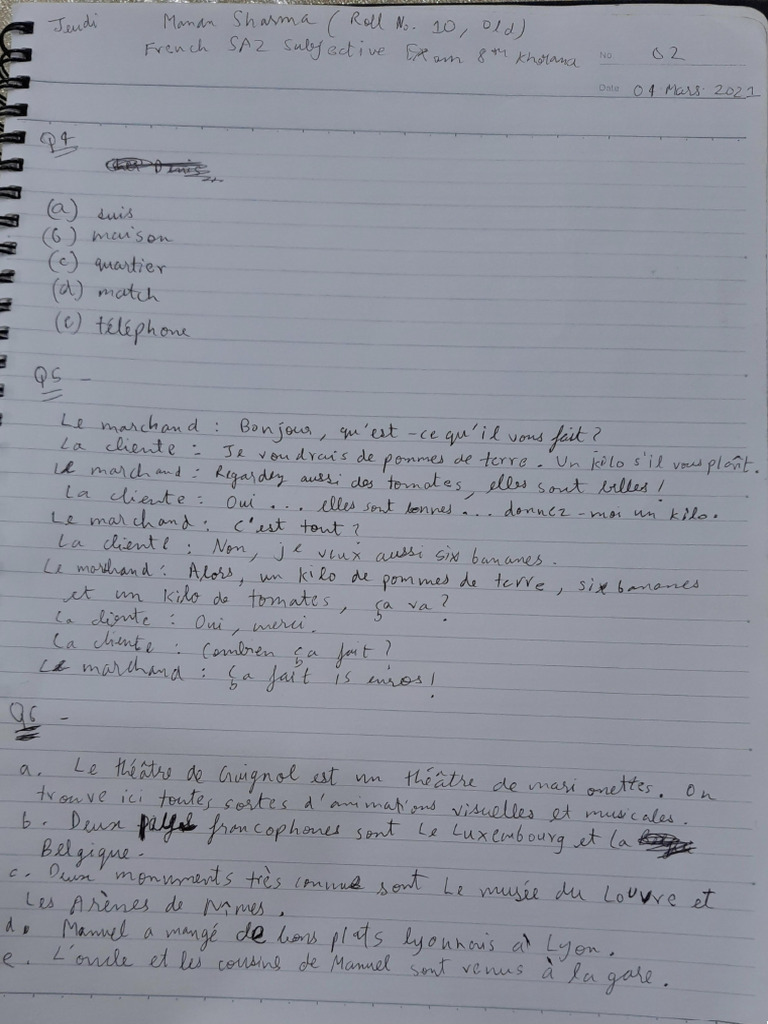 Jeudi Manan Sharma (Roll No. 10, Old)
French SA2 Subjective Exam 8th Khorana No. 02
Date 04 Mars 2021
Q4
(a) suis
(b) maison
(c) quartier
(d) match
(e) téléphone
Q5 -
Le marchand : Bonjour, qu'est-ce qu'il vous fait ?
La cliente : Je voudrais de pommes de terre. Un kilo s'il vous plaît.
Le marchand : Regardez aussi des tomates, elles sont belles !
La cliente : Oui ... elles sont bonnes ... donnez-moi un kilo.
Le marchand : C'est tout ?
La cliente : Non, je veux aussi six bananes.
Le marchand : Alors, un kilo de pommes de terre, six bananes
et un kilo de tomates, ça va ?
La cliente : Oui, merci.
La cliente : Combien ça fait ?
Le marchand : Ça fait 15 euros !
Q6 -
a. Le théâtre de Guignol est un théâtre de marionettes. On
trouve ici toutes sortes d'animations visuelles et musicales.
b. Deux pays francophones sont Le Luxembourg et la
Belgique.
c. Deux monuments très connus sont Le musée du Louvre et
Les Arènes de Nîmes.
d. Manuel a mangé de bons plats lyonnais à Lyon.
e. L'oncle et les cousins de Manuel sont venus à la gare.